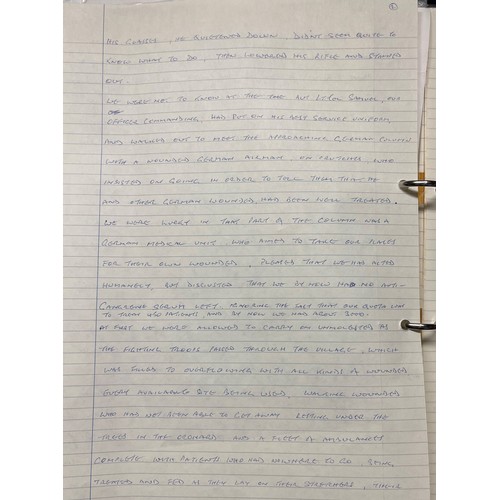 HIS CLASSIC, HE QUIETENED DOWN, DIDN'T SEEM QUITE TO
KNOW WHAT TO DO, THEN LOWERED HIS RIFLE AND
OUT.
WE WERE NOT TO KNOW AT THE TIME BUT LT. COL. SAMUEL, OUR
OFFICER COMMANDING, HAD PUT ON HIS BEST SERVICE UNIFORM
AND WALKED OUT TO MEET THE APPROACHING GERMAN COLUMN
WITH A WOUNDED GERMAN AIRMAN ON CRUTCHES, WHO
INSISTED ON GOING IN ORDER TO TELL THEM THAT HE
AND OTHER GERMAN WOUNDED HAD BEEN WELL TREATED.
WE WERE LUCKY IN THAT PART OF THE COLUMN WAS A
GERMAN MEDICAL UNIT, WHO AIMED TO TAKE OUR PLACES
FOR THEIR OWN WOUNDED, PLEASED THAT WE HAD ACTED
HUMANELY, BUT DISGUSTED THAT WE BY NOW HAD NO ANTI-
GANGRENE SERUM LEFT, IGNORING THE FACT THAT OUR QUOTA WAS
TO TREAT 450 PATIENTS AND BY NOW WE HAD ABOUT
AT FIRST WE WERE ALLOWED TO CARRY ON UNMOLESTED AS
THE FIGHTING TROOPS PASSED THROUGH THE VILLAGE, WHICH
WAS FILLED TO OVERFLOWING WITH ALL KINDS OF WOUNDED.
EVERY AVAILABLE BEING USED, WALKING WOUNDED
WHO HAD NOT BEEN ABLE TO GET AWAY RESTING UNDER THE
TREES IN THE ORCHARD AND A FLEET OF AMBULANCES
COMPLETE WITH PATIENTS WHO HAD NOWHERE TO GO, BEING
TREATED AND FED AS THEY LAY ON THEIR STRETCHERS. THEIR